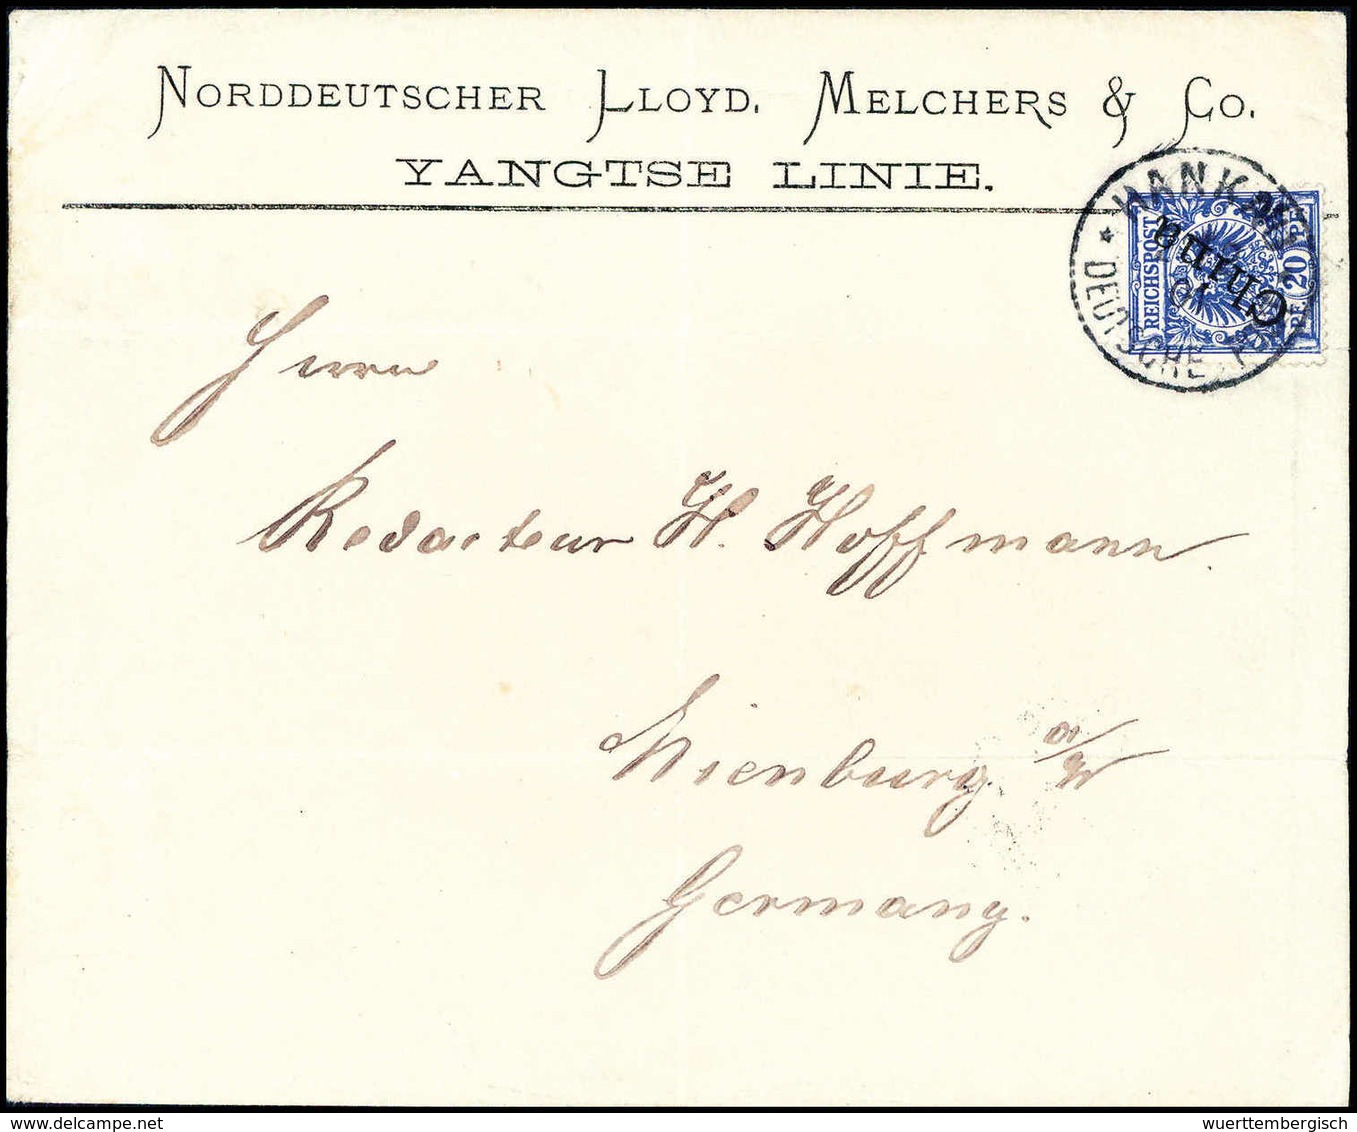 NORDDEUTSCHER LLOYD. MELCHERS & CO.
YANGTSE LINIE.
HANKAU
* DEUTSCHE POST
REICHSPOST
20
China
Herrn
Redacteur H. Hoffmann.
Nienburg a/W
Germany.
wuerttembergisch